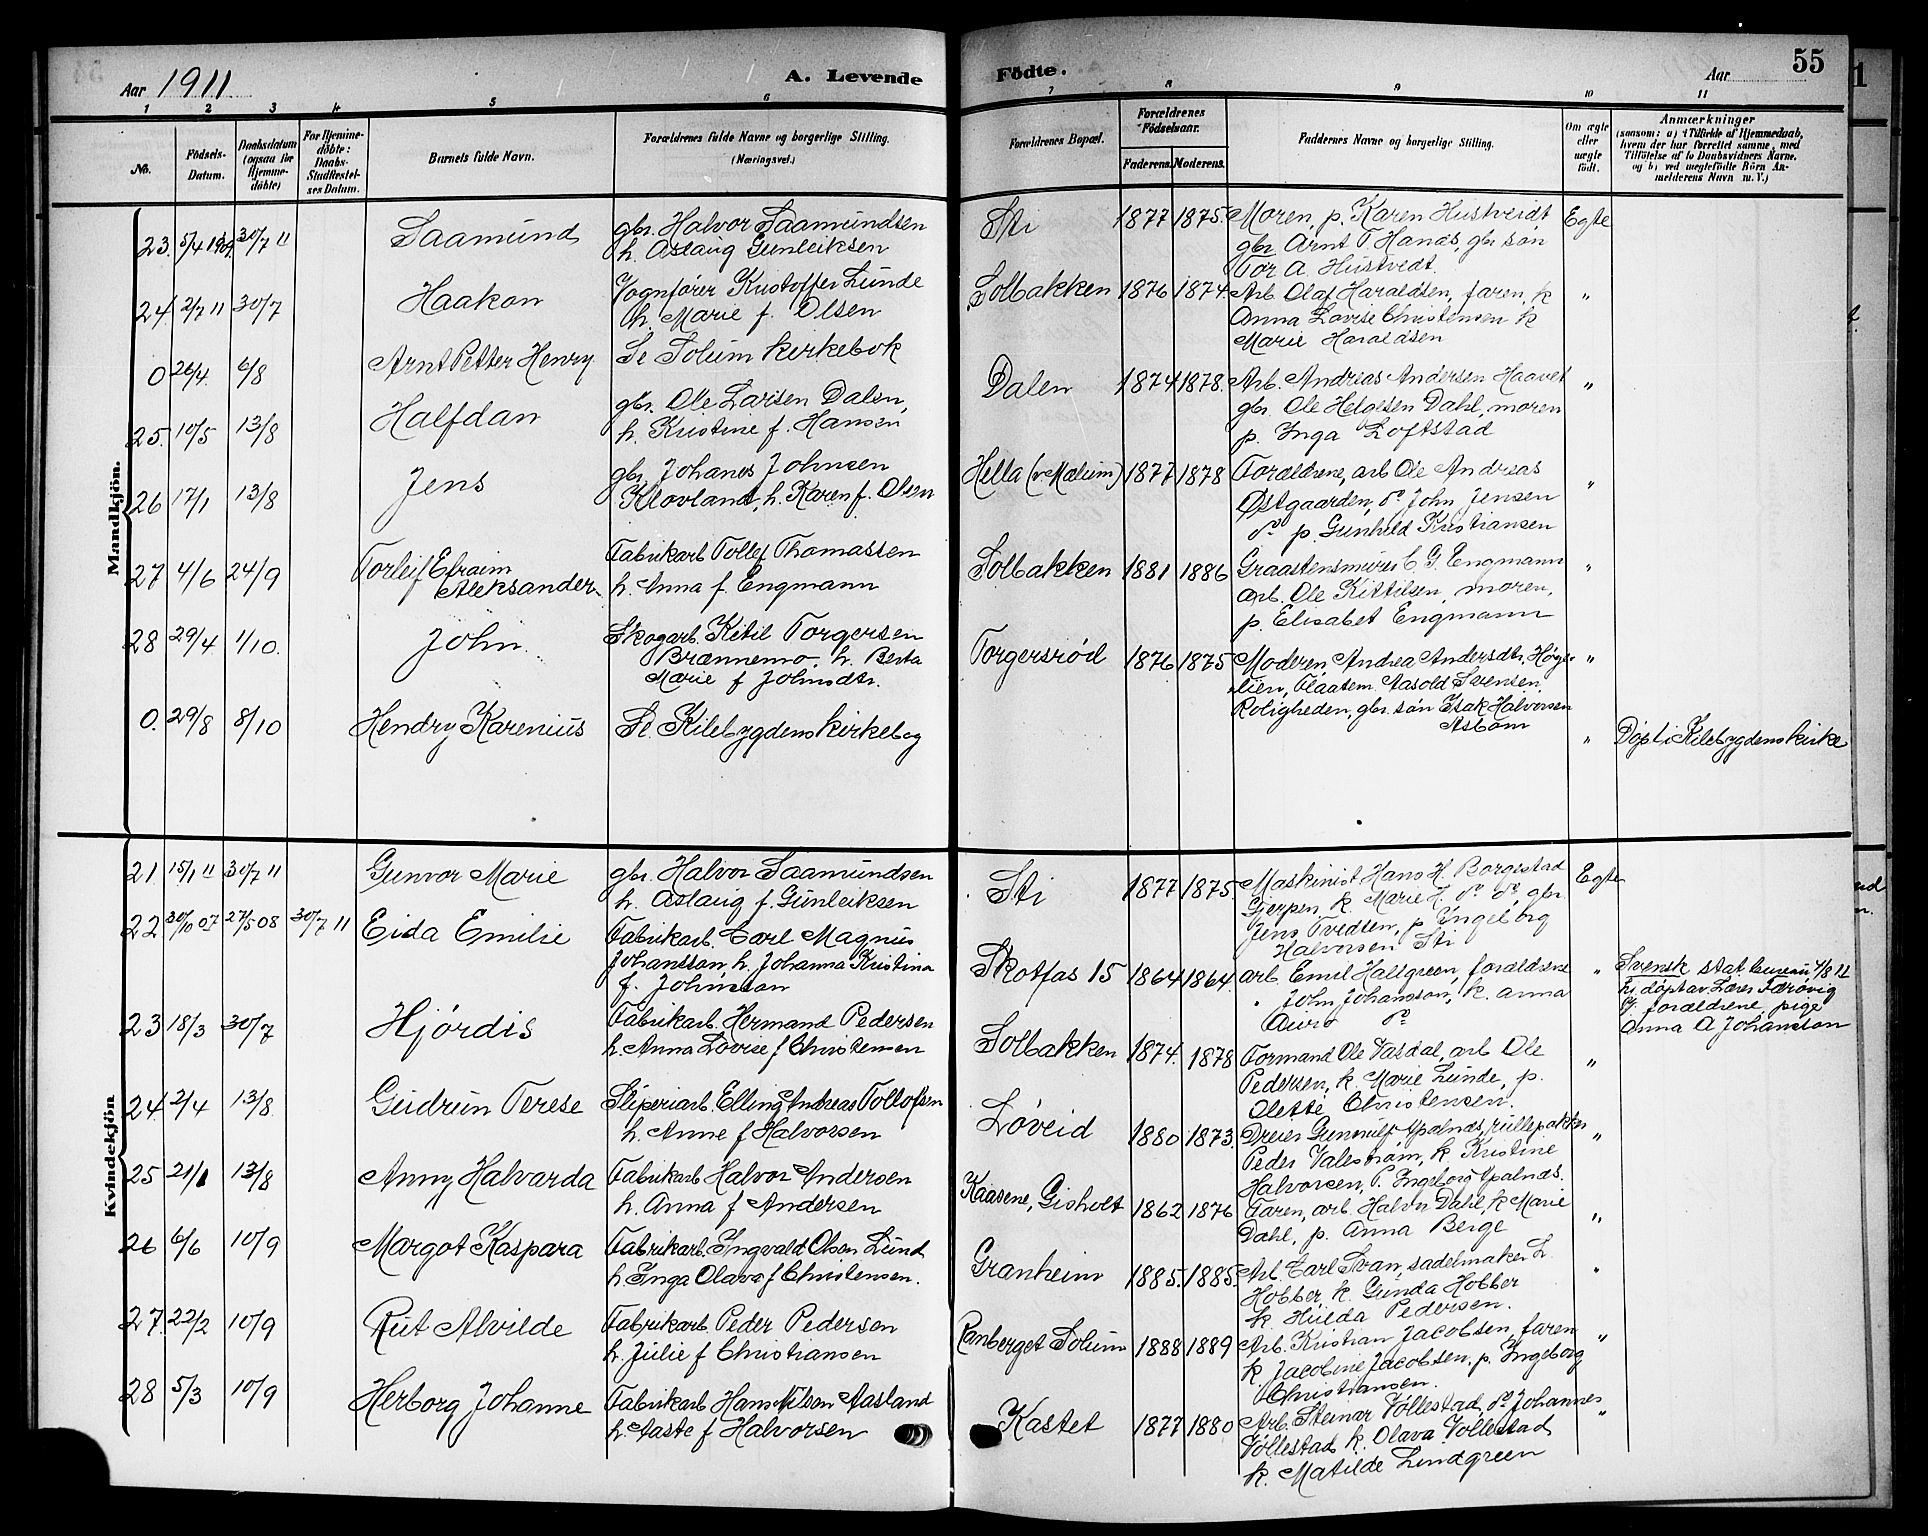 55
Aar 1911
A. Levende Födte.
Aar
1 2 3 4 5 6 7 8 9 10 11
No.
Födsels-Datum.
Daabsdatum (ogsaa for Hjemme-döbte)
For Hjemme-döbte: Daabs-Stadfæstel-ses Datum.
Barnets fulde Navn.
Forældrenes fulde Navne og borgerlige Stilling. (Næringsvei.)
Forældrenes Bopæl.
Forældrenes Födselsaar.
Faderens. Moderens.
Faddernes Navne og borgerlige Stilling.
Om ægte eller uægte födt.
Anmærkninger (saasom: a) i Tilfælde af Hjemmedaab, hvem der har forrettet samme, med Tilföielse af to Daabsvidners Navne, og b) ved uægtefödte Börn An-melderens Navn m. V.)
Mandkjön.
23. 5/4 1909. 30/7 11 Saamund
gbr. Halvor Saamundsen
h. Aslaug Gunleiksen
Sti 1877 1875.
Moren, p. Karen Hustveidt
gbr Arnt T Hanas, gbr søn
Tor A. Hustvedt.
Egte
24 2/7 11 30/7 Haakon
Vognfører Kristoffer Lunde
h. Marie f. Olsen
Solbakken 1876 1874.
Arb. Olaf Haraldsen, faren, k
Anna Lovise Christensen k
Marie Haraldsen
"
0 26/4. 6/8 Arnt Petter Henry
Se Solum kirkebok
25. 10/5 13/8 Halfdan
gbr. Ole Larsen Dalen,
h. Kristine f. Hansen
Dalen 1874 1878.
Arb. Andreas Andersen Haavet
gbr. Ole Helgesen Dahl, moren
p. Inga Loftstad
"
26 17/1 13/8 Jens
gbr. Johanes Johnsen
Klovland, h. Karen f. Olsen
Hella (v Mælum) 1877 1878
Forældrene, arb Ole Andreas
Østgaarden, do John Jensen
do p. Gunhild Kristiansen
"
27 4/6 24/9 Torleif Efraim
Aleksander
Fabrikarb Tollef Thomassen
h. Anna f Engmann
Solbakken 1881 1886
Graastensmurer C G. Engmann
arb. Ole Kittilsen, moren,
p. Elisabet Engmann
"
28 29/4 1/10. John
Skogarb. Kitil Torgersen
Brænnemo. h. Berta
Marie f Johnsdtr.
Torgersrød 1876 1875
Moderen, Andrea Andersdtr. Høge-
lien, Aasold Svensen
Roligheden, gbr. søn Isak Halvorsen
Asbom
"
0. 29/8 8/10 Hendry Karenius
Se Kilebygdens kirkebog
" Døpt i Kilebygdens kirke
Kvindekjön
21 15/1 11 30/7 11 Gunvor Marie
gbr. Halvor Saamundsen
h. Aslaug f. Gunleiksen
Sti 1877 1875.
Maskinist Hans H. Borgestad
Gjerpen, k. Marie do do, gbr.
Jens Tvedsen, p Ingeborg
Halvorsen Sti
Egte
22 30/10 07 27/5 08 30/7 11 Eida Emilie
Fabrikarb. Carl Magnus
Johansson, h. Johanna Kristina
f. Johnsson
Skotfos 15 1864 1864
arb. Emil Hallgreen, forældrene
" John Johansson, k. Anna
do
"
Svensk stat. bureau 4/8 11
døpt av Lærer Færøvig
forældrene pige
Anna A Johansson
23 18/3 30/7 Hjørdis
Fabrikarb. Hermand Pedersen
h. Anna Lovise f Christensen
Solbakken 1874. 1878
Formand Ole Vasdal, arb Ole
Pedersen, k. Marie Lunde, p.
Olette Christensen.
"
24. 2/4 13/8 Gudrun Terese
Sliperiarb. Elling Andreas Tollofsen
h. Anne f Halvorsen
Løveid 1880 1873.
Dreier Gunnulf Apalnæs, rullepakker
Peder Valestrøm, k Kristine
Halvorsen, P. Ingeborg Apalnæs.
"
25 21/1 13/8 Anny Halvarda
Fabrikarb Halvor Andersen
h. Anna f Andersen
Kaasene, Gisholt 1862 1876
Faren, arb. Halvor Dahl, k Marie
Dahl, p. Anna Berge
"
26 6/6 10/9 Margot Kaspara
Fabrikarb. Ingvald Olsen Lund
h Inga Olava f Christensen.
Granheim 1885. 1885.
Arb. Carl Svan, sadelmaker L.
Hobber k. Gunda Hobber
k. Hulda Pedersen.
"
27. 22/2 10/9 Rut Alvilde
Fabrikarb. Peder Pedersen
h. Julie f Christiansen
Ranberget Solum 1888 1889
Arb. Kristian Jacobsen, faren
k. Jacobine Jacobsen, p. Ingeborg
Christiansen.
"
28 5/3 10/9 Herborg Johanne
Fabrikarb Hans Nilsen Aasland
h. Aaste f Halvorsen
Kastet 1877 1880
Arb. Steinar Vøllestad, do Johannes
Vøllestad k. Olava Vøllestad
k. Matilde Lindgreen
"